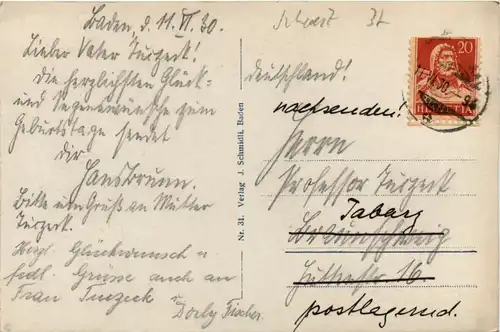 Baden, d. 11. VI. 30.
Lieber Vater Turzeck!
Die herzlichsten Glück-
und Segenswünsche zum
Geburtstage sendet
Dir
Hans Brunn.
Bitte ein Gruß an Mutter
Turzeck.
Herzl. Glückwunsch u
frdl. Grüsse auch an
Frau Turzeck
Dorly Fischer
Nr. 31. Verlag J. Schmidli, Baden
20
HELVETIA
Deutschland!
nachsenden!
Herrn
Professor Turzeck
Tabarz
Braunschweig
16.
postlagernd.